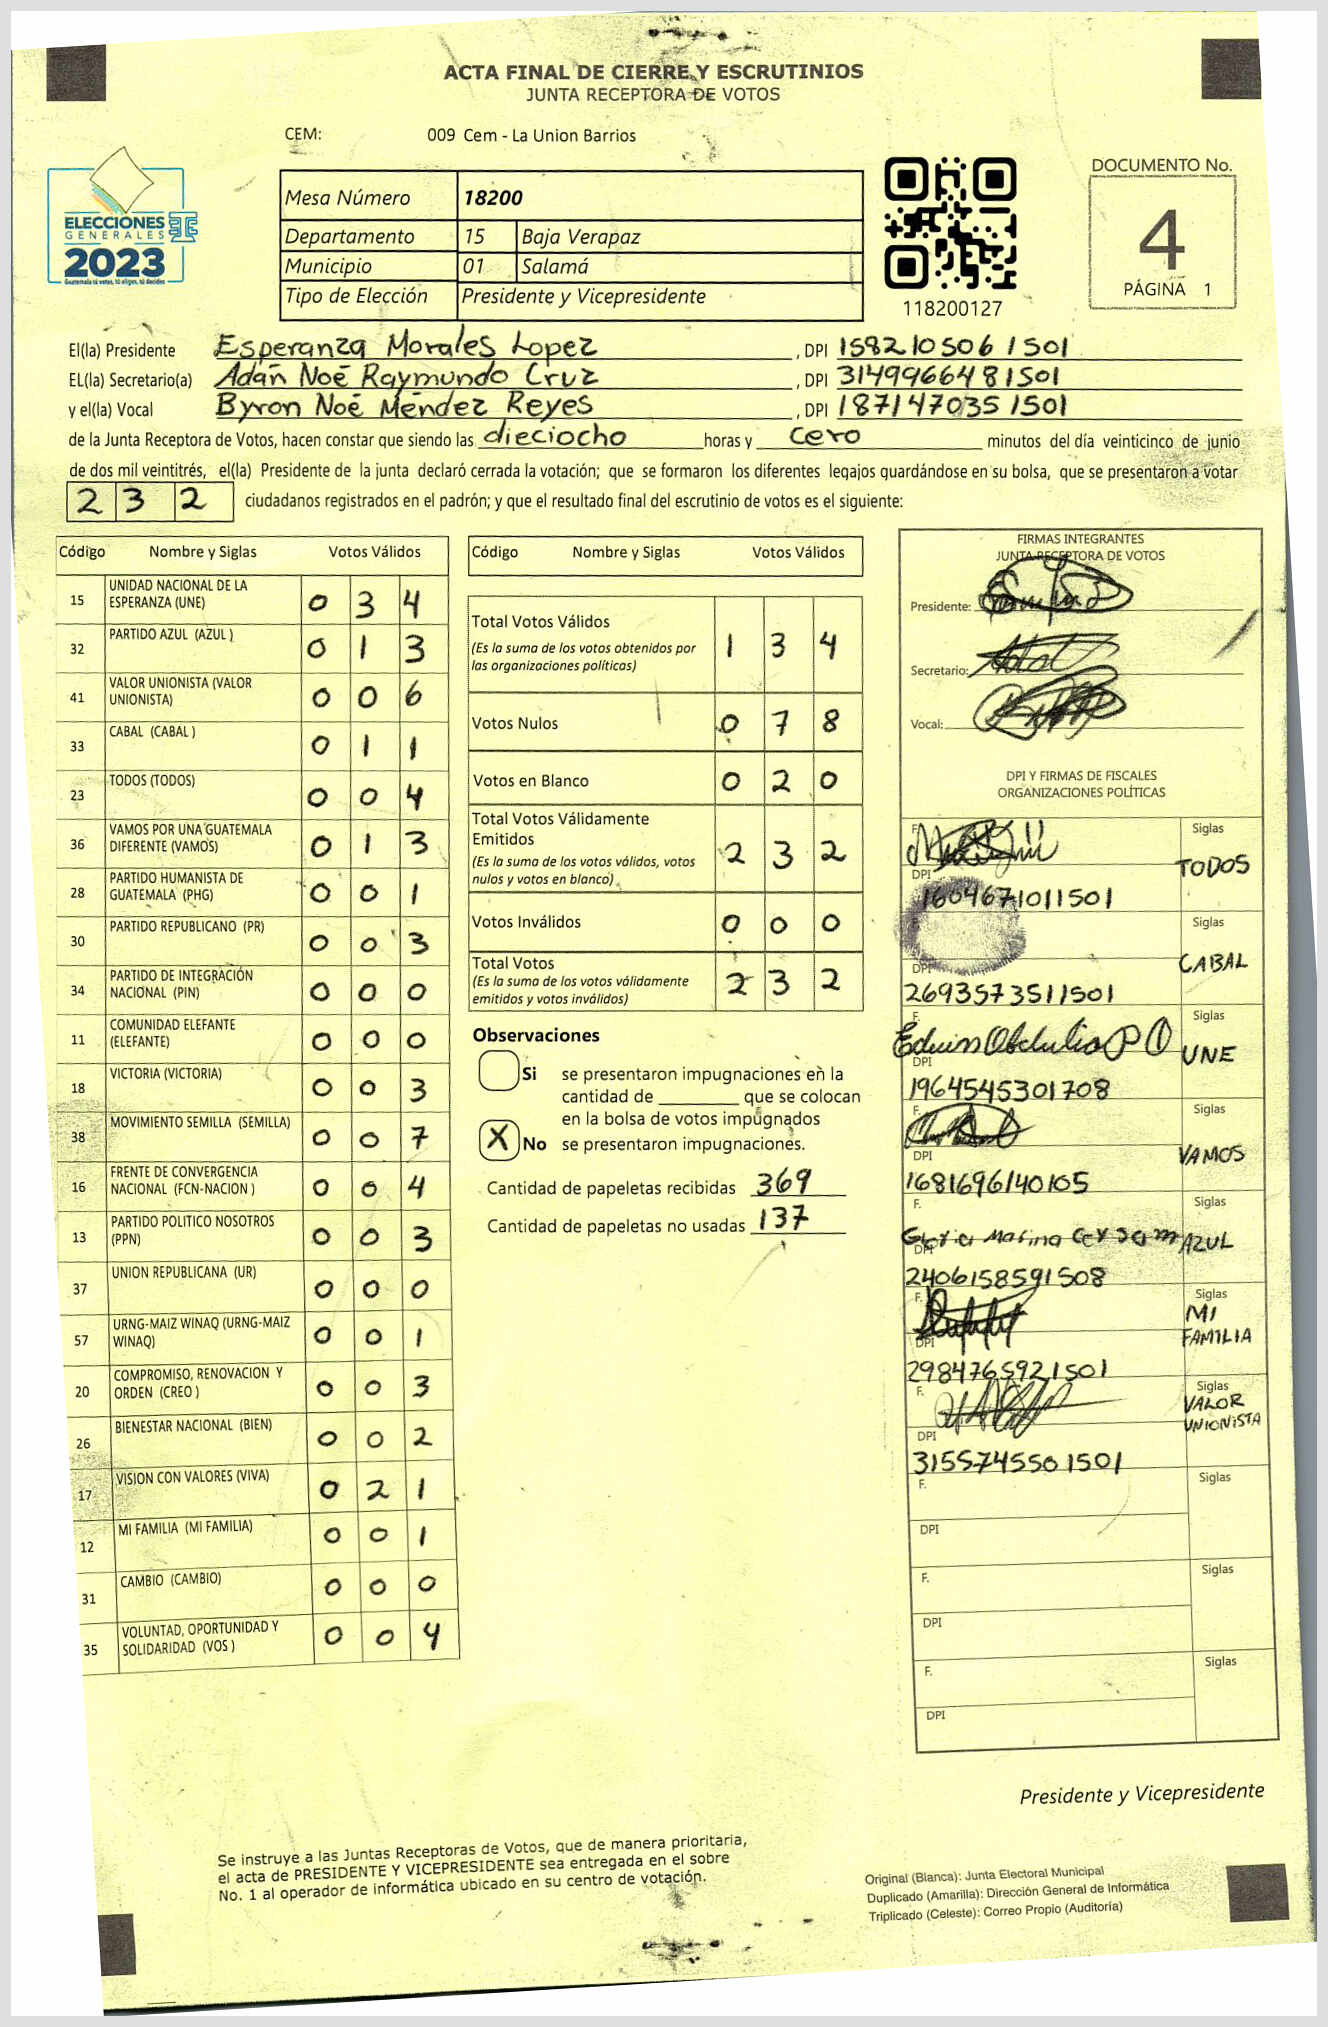 ACTA FINAL DE CIERRE Y ESCRUTINIOS
JUNTA RECEPTORA DE VOTOS
CEM: 009 Cem - La Union Barrios
ELECCIONES
GENERALES
2023
Guatemala tú votas, tú eliges, tú decides
Mesa Número 18200
Departamento 15 Baja Verapaz
Municipio 01 Salamá
Tipo de Elección Presidente y Vicepresidente
118200127
DOCUMENTO No.
4
PÁGINA 1
El(la) Presidente Esperanza Morales Lopez, DPI 1582105061501
EL(la) Secretario(a) Adán Noé Raymundo Cruz, DPI 3149966481501
y el(la) Vocal Byron Noé Méndez Reyes, DPI 1871470351501
de la Junta Receptora de Votos, hacen constar que siendo las dieciocho horas y cero minutos del día veinticinco de junio
de dos mil veintitrés, el(la) Presidente de la junta declaró cerrada la votación; que se formaron los diferentes legajos guardándose en su bolsa, que se presentaron a votar
2 3 2 ciudadanos registrados en el padrón; y que el resultado final del escrutinio de votos es el siguiente:
Código Nombre y Siglas Votos Válidos
15 UNIDAD NACIONAL DE LA ESPERANZA (UNE) 0 3 4
32 PARTIDO AZUL (AZUL ) 0 1 3
41 VALOR UNIONISTA (VALOR UNIONISTA) 0 0 6
33 CABAL (CABAL ) 0 1 1
23 TODOS (TODOS) 0 0 4
36 VAMOS POR UNA GUATEMALA DIFERENTE (VAMOS) 0 1 3
28 PARTIDO HUMANISTA DE GUATEMALA (PHG) 0 0 1
30 PARTIDO REPUBLICANO (PR) 0 0 3
34 PARTIDO DE INTEGRACIÓN NACIONAL (PIN) 0 0 0
11 COMUNIDAD ELEFANTE (ELEFANTE) 0 0 0
18 VICTORIA (VICTORIA) 0 0 3
38 MOVIMIENTO SEMILLA (SEMILLA) 0 0 7
16 FRENTE DE CONVERGENCIA NACIONAL (FCN-NACION ) 0 0 4
13 PARTIDO POLITICO NOSOTROS (PPN) 0 0 3
37 UNION REPUBLICANA (UR) 0 0 0
57 URNG-MAIZ WINAQ (URNG-MAIZ WINAQ) 0 0 1
20 COMPROMISO, RENOVACION Y ORDEN (CREO ) 0 0 3
26 BIENESTAR NACIONAL (BIEN) 0 0 2
17 VISION CON VALORES (VIVA) 0 2 1
12 MI FAMILIA (MI FAMILIA) 0 0 1
31 CAMBIO (CAMBIO) 0 0 0
35 VOLUNTAD, OPORTUNIDAD Y SOLIDARIDAD (VOS ) 0 0 4
Código Nombre y Siglas Votos Válidos
Total Votos Válidos 1 3 4
(Es la suma de los votos obtenidos por
las organizaciones políticas)
Votos Nulos 0 7 8
Votos en Blanco 0 2 0
Total Votos Válidamente
Emitidos 2 3 2
(Es la suma de los votos válidos, votos
nulos y votos en blanco)
Votos Inválidos 0 0 0
Total Votos 2 3 2
(Es la suma de los votos válidamente
emitidos y votos inválidos)
Observaciones
Si se presentaron impugnaciones en la
cantidad de ________ que se colocan
en la bolsa de votos impugnados
X No se presentaron impugnaciones.
Cantidad de papeletas recibidas 369
Cantidad de papeletas no usadas 137
FIRMAS INTEGRANTES
JUNTA RECEPTORA DE VOTOS
Presidente:
Secretario:
Vocal:
DPI Y FIRMAS DE FISCALES
ORGANIZACIONES POLÍTICAS
F. Siglas
TODOS
DPI
1604671011501
F. Siglas
CABAL
DPI
2693573511501
F. Siglas
UNE
DPI
1964545301708
F. Siglas
VAMOS
DPI
1681696140105
F. Siglas
Gloria Marina AZUL
DPI
2406158591508
F. Siglas
MI
FAMILIA
DPI
2984765921501
F. Siglas
VALOR
UNIONISTA
DPI
3155745501501
F. Siglas
DPI
F. Siglas
DPI
F. Siglas
DPI
Presidente y Vicepresidente
Se instruye a las Juntas Receptoras de Votos, que de manera prioritaria,
el acta de PRESIDENTE Y VICEPRESIDENTE sea entregada en el sobre
No. 1 al operador de informática ubicado en su centro de votación.
Original (Blanca): Junta Electoral Municipal
Duplicado (Amarilla): Dirección General de Informática
Triplicado (Celeste): Correo Propio (Auditoría)